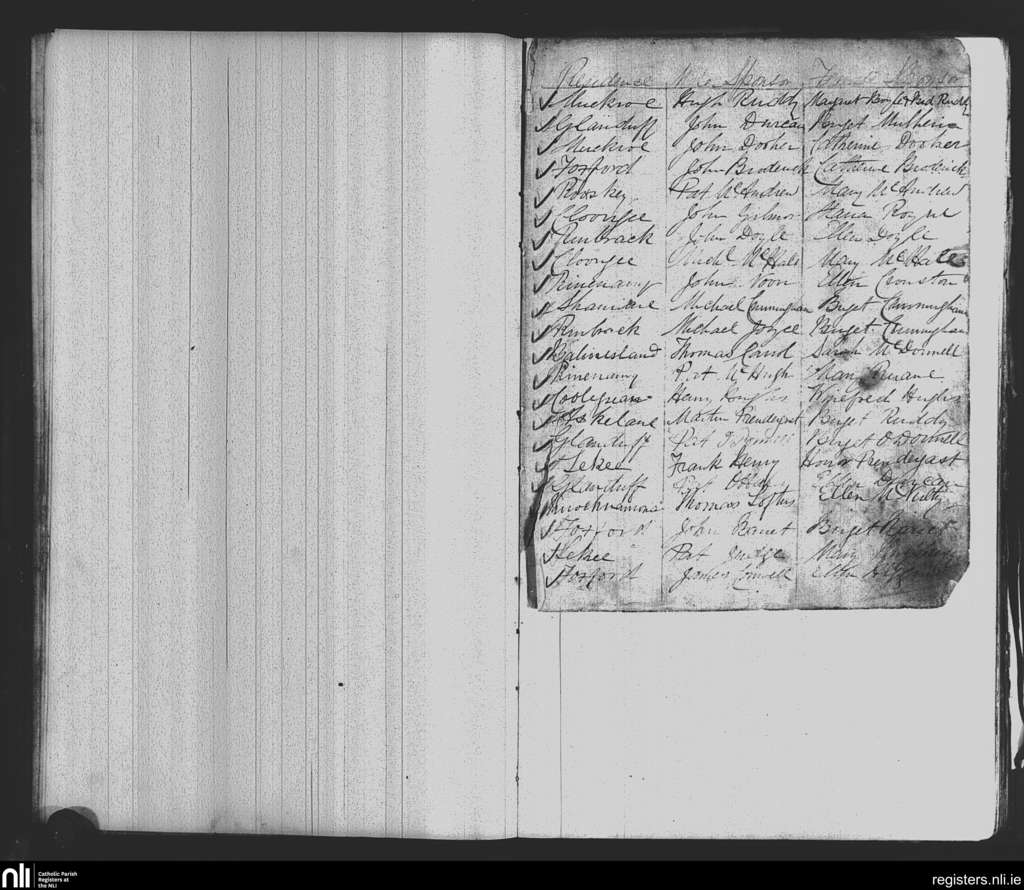 Residence Male Sponsor Female Sponsor
Muckroe Hugh Ruddy Margret Boyle & Brd Ruddy
Glanduff John Duncan Briget Mulherin
Muckroe John Doher Catherine Dooher
Foxford John Broderick Catherine Broderick
Rooskey Pat McAndrew Mary McAndrew
Cloongee John Gilmor Hana Rogue
Rinbrack John Doyle Ellen Doyle
Cloongee Michl McHale Mary McHale
Rinenany John Noon Ellen Cronston
Michael Cunningham Briget Cunningham
Rinbrack Michael Joyce Briget Cunningham
Balinesland Thomas Carrol Sarah McDonnell
Rinenany Pat McHugh Mary Ruane
Henry Winefred Hughs
Martin Prendergast Briget Ruddy
Glanduff Pat O'Donnell Briget O'Donnell
Lekee Frank Henry Honor Prendergast
Glanduff Pat Ellen Duncan
Thomas Loftus Ellen McNulty
Foxford John Barret Briget
Lekee Pat Judge Mary
Foxford James Connell Ellen
nli
Catholic Parish
Registers at
the NLI
registers.nli.ie